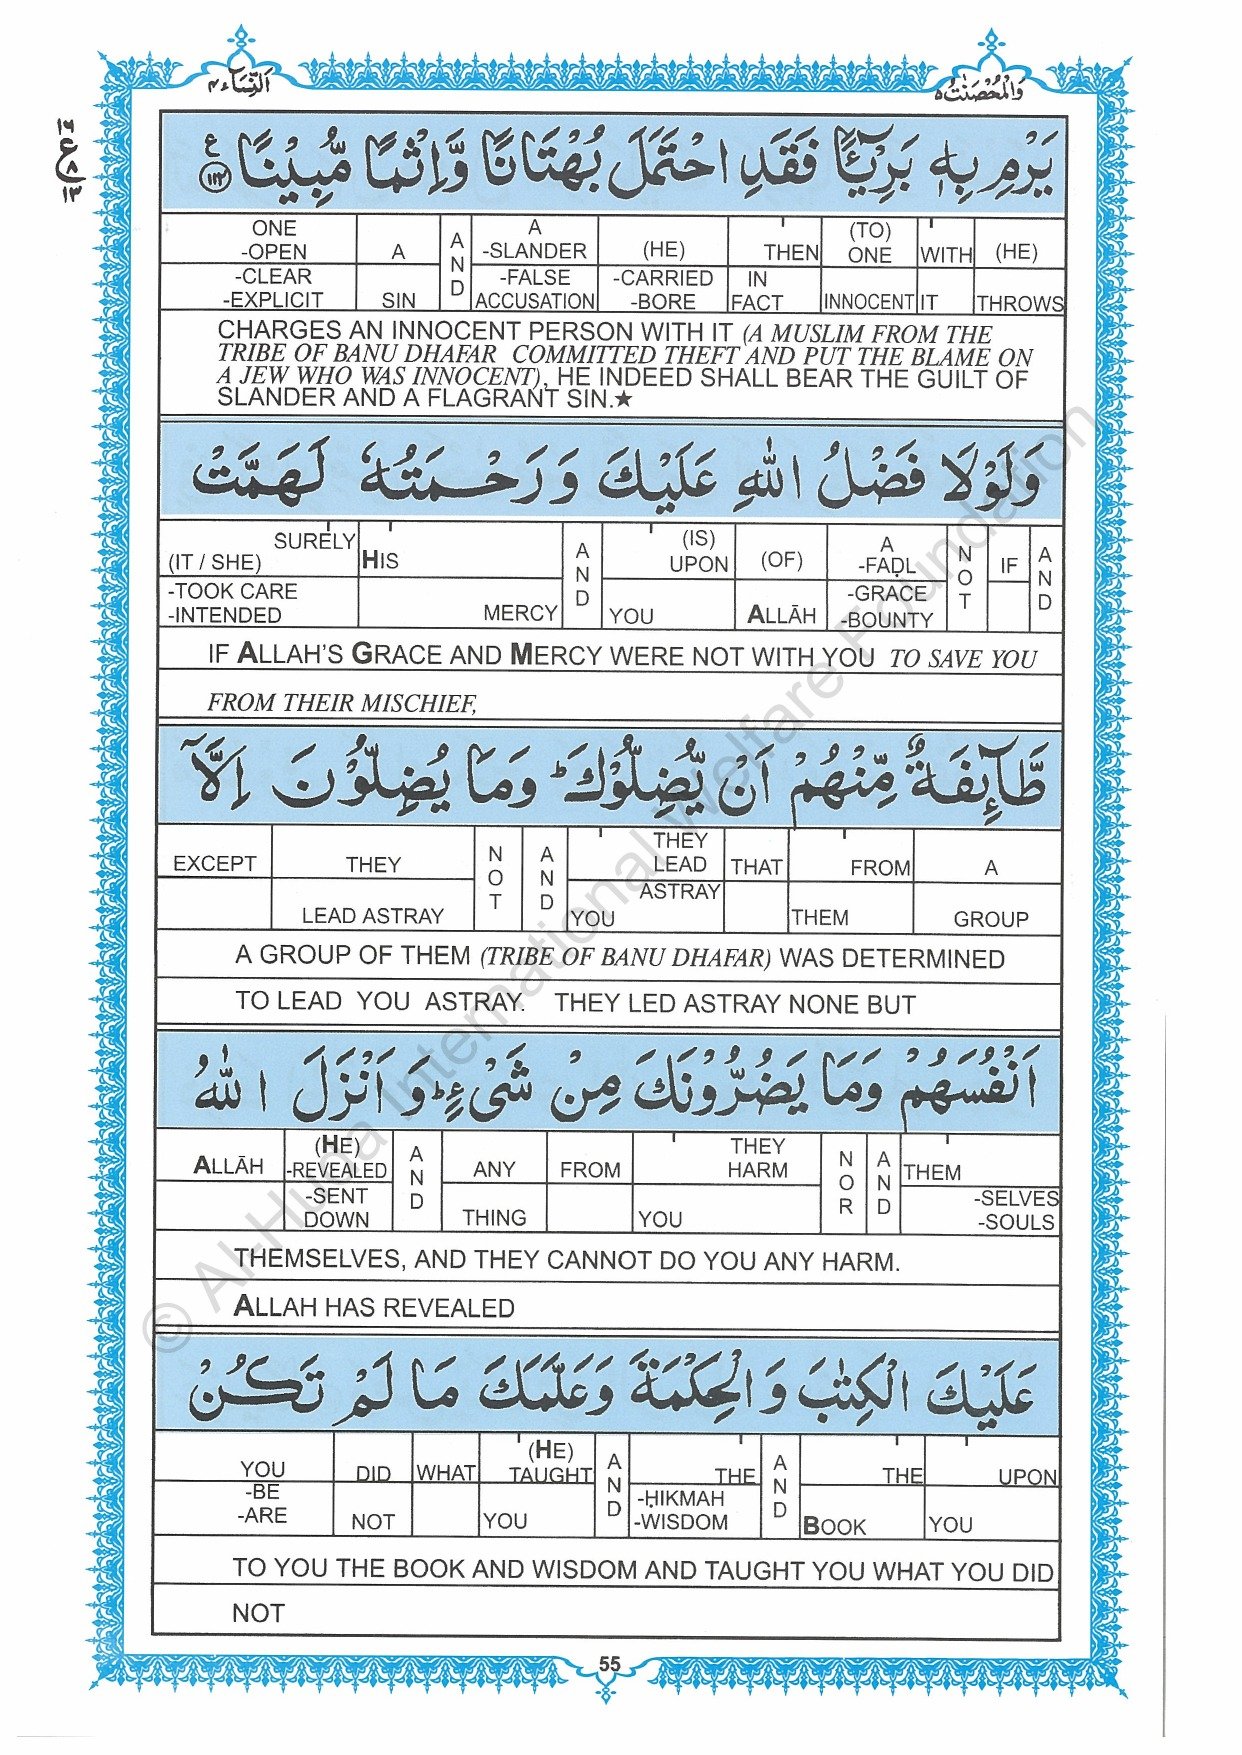 النِّسَآء ٤
وَالْمُحْصَنٰت ٥
١٦
ع
٨
١٣
يَرْمِ بِهٖ بَرِيْٓـًٔا فَقَدِ احْتَمَلَ بُهْتَانًا وَّاِثْمًا مُّبِيْنًا ﴿١١٢﴾ ع
ONE -OPEN A AND A -SLANDER (HE) THEN (TO) ONE WITH (HE)
-CLEAR -EXPLICIT SIN -FALSE ACCUSATION -CARRIED -BORE IN FACT INNOCENT IT THROWS
CHARGES AN INNOCENT PERSON WITH IT (A MUSLIM FROM THE
TRIBE OF BANU DHAFAR COMMITTED THEFT AND PUT THE BLAME ON
A JEW WHO WAS INNOCENT), HE INDEED SHALL BEAR THE GUILT OF
SLANDER AND A FLAGRANT SIN.★
وَلَوْلَا فَضْلُ اللّٰهِ عَلَيْكَ وَرَحْمَتُهٗ لَهَمَّتْ
SURELY (IT / SHE) HIS AND (IS) UPON (OF) A -FAḌL NOT IF AND
-TOOK CARE -INTENDED MERCY YOU ALLĀH -GRACE -BOUNTY
IF ALLAH'S GRACE AND MERCY WERE NOT WITH YOU TO SAVE YOU
FROM THEIR MISCHIEF,
طَّآئِفَةٌ مِّنْهُمْ اَنْ يُّضِلُّوْكَ ؕ وَمَا يُضِلُّوْنَ اِلَّآ
EXCEPT THEY NOT AND THEY LEAD THAT FROM A
LEAD ASTRAY ASTRAY YOU THEM GROUP
A GROUP OF THEM (TRIBE OF BANU DHAFAR) WAS DETERMINED
TO LEAD YOU ASTRAY. THEY LED ASTRAY NONE BUT
اَنْفُسَهُمْ وَمَا يَضُرُّوْنَكَ مِنْ شَىْءٍ ؕ وَاَنْزَلَ اللّٰهُ
ALLĀH (HE) -REVEALED AND ANY FROM THEY HARM NOR AND THEM
-SENT DOWN THING YOU -SELVES -SOULS
THEMSELVES, AND THEY CANNOT DO YOU ANY HARM.
ALLAH HAS REVEALED
عَلَيْكَ الْكِتٰبَ وَالْحِكْمَةَ وَعَلَّمَكَ مَا لَمْ تَكُنْ
YOU DID WHAT (HE) TAUGHT AND THE AND THE UPON
-BE -ARE NOT YOU -ḤIKMAH -WISDOM BOOK YOU
TO YOU THE BOOK AND WISDOM AND TAUGHT YOU WHAT YOU DID
NOT
55
© Al-Huda International Welfare Foundation